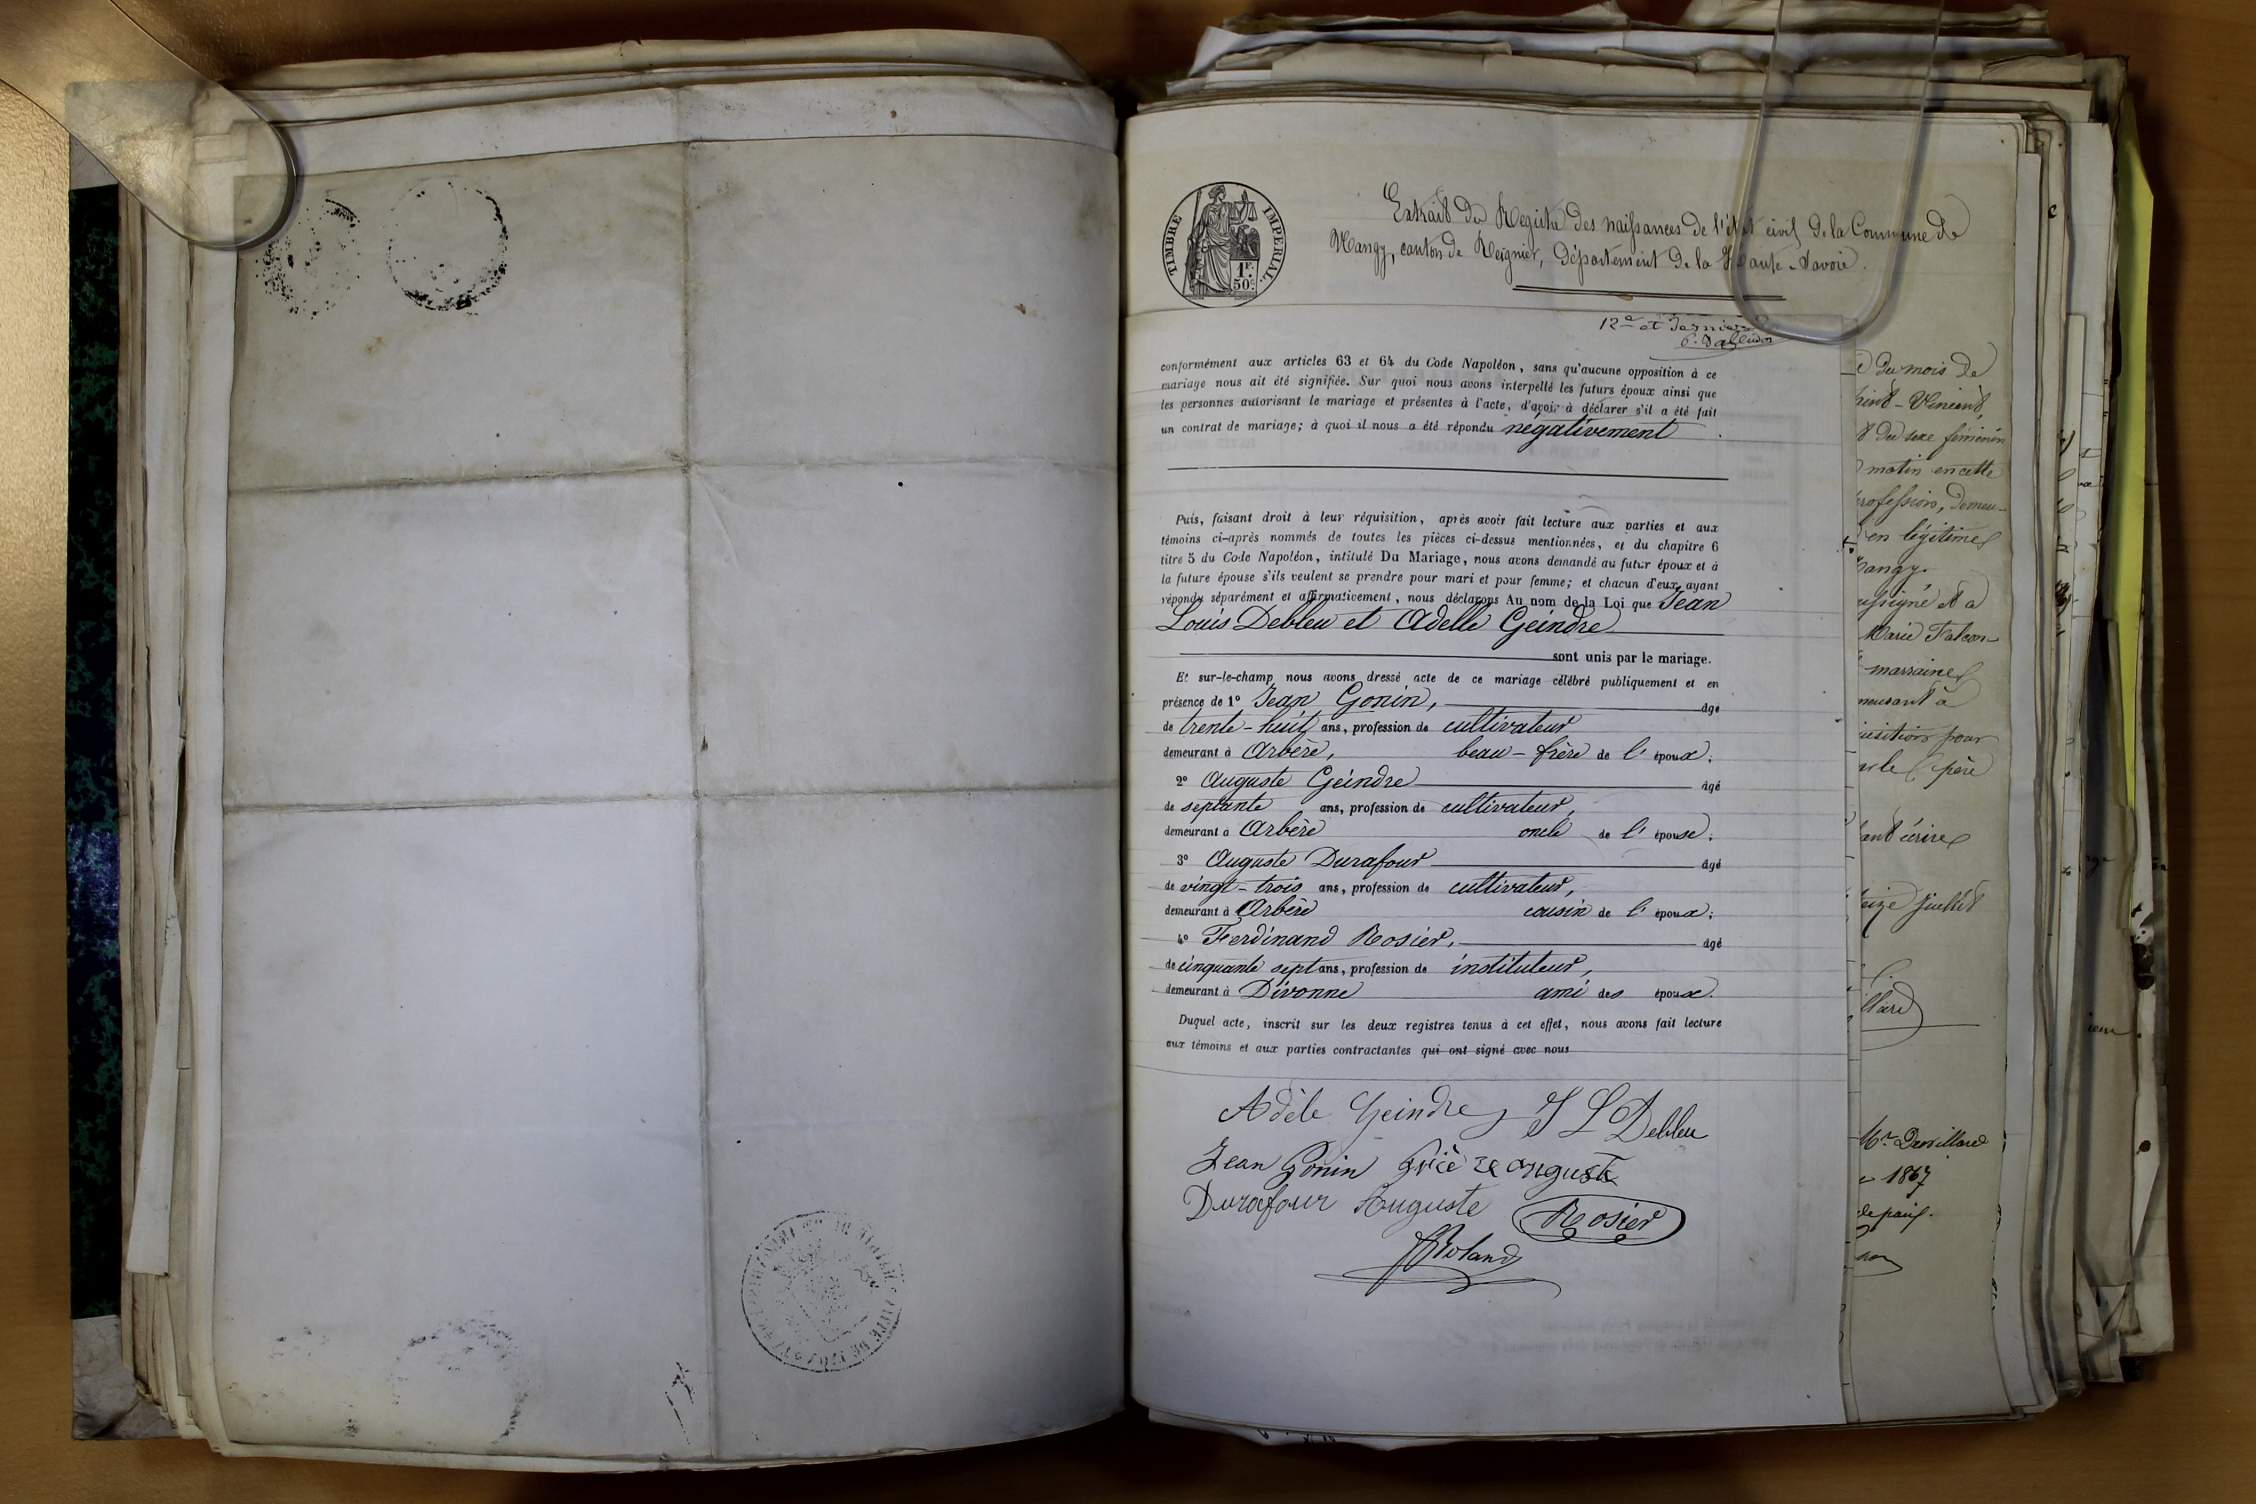 TIMBRE IMPERIAL.
1F.
50C.
Extrait du Registre des naissances de l'état civil de la Commune de
Nangy, canton de Reignier, Département de la Haute-Savoie.
12e et dernier
conformément aux articles 63 et 64 du Code Napoléon, sans qu'aucune opposition à ce
mariage nous ait été signifiée. Sur quoi nous avons interpellé les futurs époux ainsi que
les personnes autorisant le mariage et présentes à l'acte, d'avoir à déclarer s'il a été fait
un contrat de mariage; à quoi il nous a été répondu négativement.
Puis, faisant droit à leur réquisition, après avoir fait lecture aux parties et aux
témoins ci-après nommés de toutes les pièces ci-dessus mentionnées, et du chapitre 6
titre 5 du Code Napoléon, intitulé Du Mariage, nous avons demandé au futur époux et à
la future épouse s'ils veulent se prendre pour mari et pour femme; et chacun d'eux ayant
répondu séparément et affirmativement, nous déclarons Au nom de la Loi que Jean
Louis Debleu et Adelle Geindre
sont unis par le mariage.
Et sur-le-champ nous avons dressé acte de ce mariage célébré publiquement et en
présence de 1o Jean Gonin, âgé
de trente-huit ans, profession de cultivateur
demeurant à Arbère, beau-frère de l'époux;
2o Auguste Geindre âgé
de septante ans, profession de cultivateur,
demeurant à Arbère oncle de l'épouse;
3o Auguste Durafour âgé
de vingt-trois ans, profession de cultivateur,
demeurant à Arbère cousin de l'époux;
4o Ferdinand Rosier, âgé
de cinquante sept ans, profession de instituteur,
demeurant à Divonne ami des époux.
Duquel acte, inscrit sur les deux registres tenus à cet effet, nous avons fait lecture
aux témoins et aux parties contractantes qui ont signé avec nous
Adèle Geindre J L Debleu
Jean Gonin auguste
Durafour Auguste Rosier
Roland
du mois de
Vincent,
du sexe féminin
matin en cette
profession, demeu-
en légitime
Nangy.
a
Marie Falcon
marraine
pour
père
écrire
juillet
Mr
1867